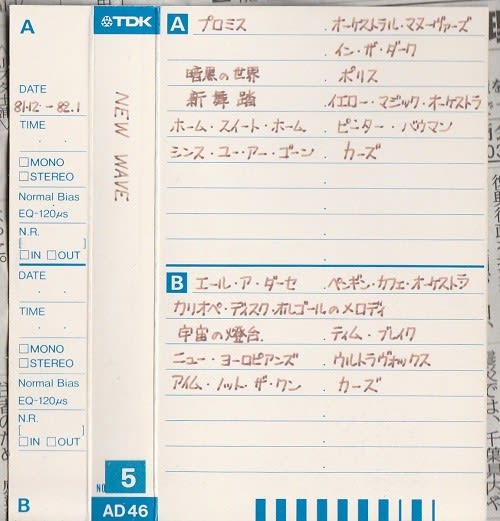 A
DATE
81.12. - 82.1
TIME
□MONO
□STEREO
Normal Bias
EQ-120μs
N.R.
[ ]
□IN □OUT
DATE
TIME
□MONO
□STEREO
Normal Bias
EQ-120μs
N.R.
[ ]
□IN □OUT
B
TDK
NEW WAVE
NO. 5
AD46
A プロミス オーケストラル・マヌーヴァーズ
イン・ザ・ダーク
暗黒の世界 ポリス
新舞踏 イエロー・マジック・オーケストラ
ホーム・スイート・ホーム ピーター・バウマン
シンス・ユー・アー・ゴーン カーズ
B エール・ア・ダーセ ペンギン・カフェ・オーケストラ
カリオペ・ディスク・オルゴールのメロディ
宇宙の燈台 ティム・ブレイク
ニュー・ヨーロピアンズ ウルトラヴォックス
アイム・ノット・ザ・ワン カーズ